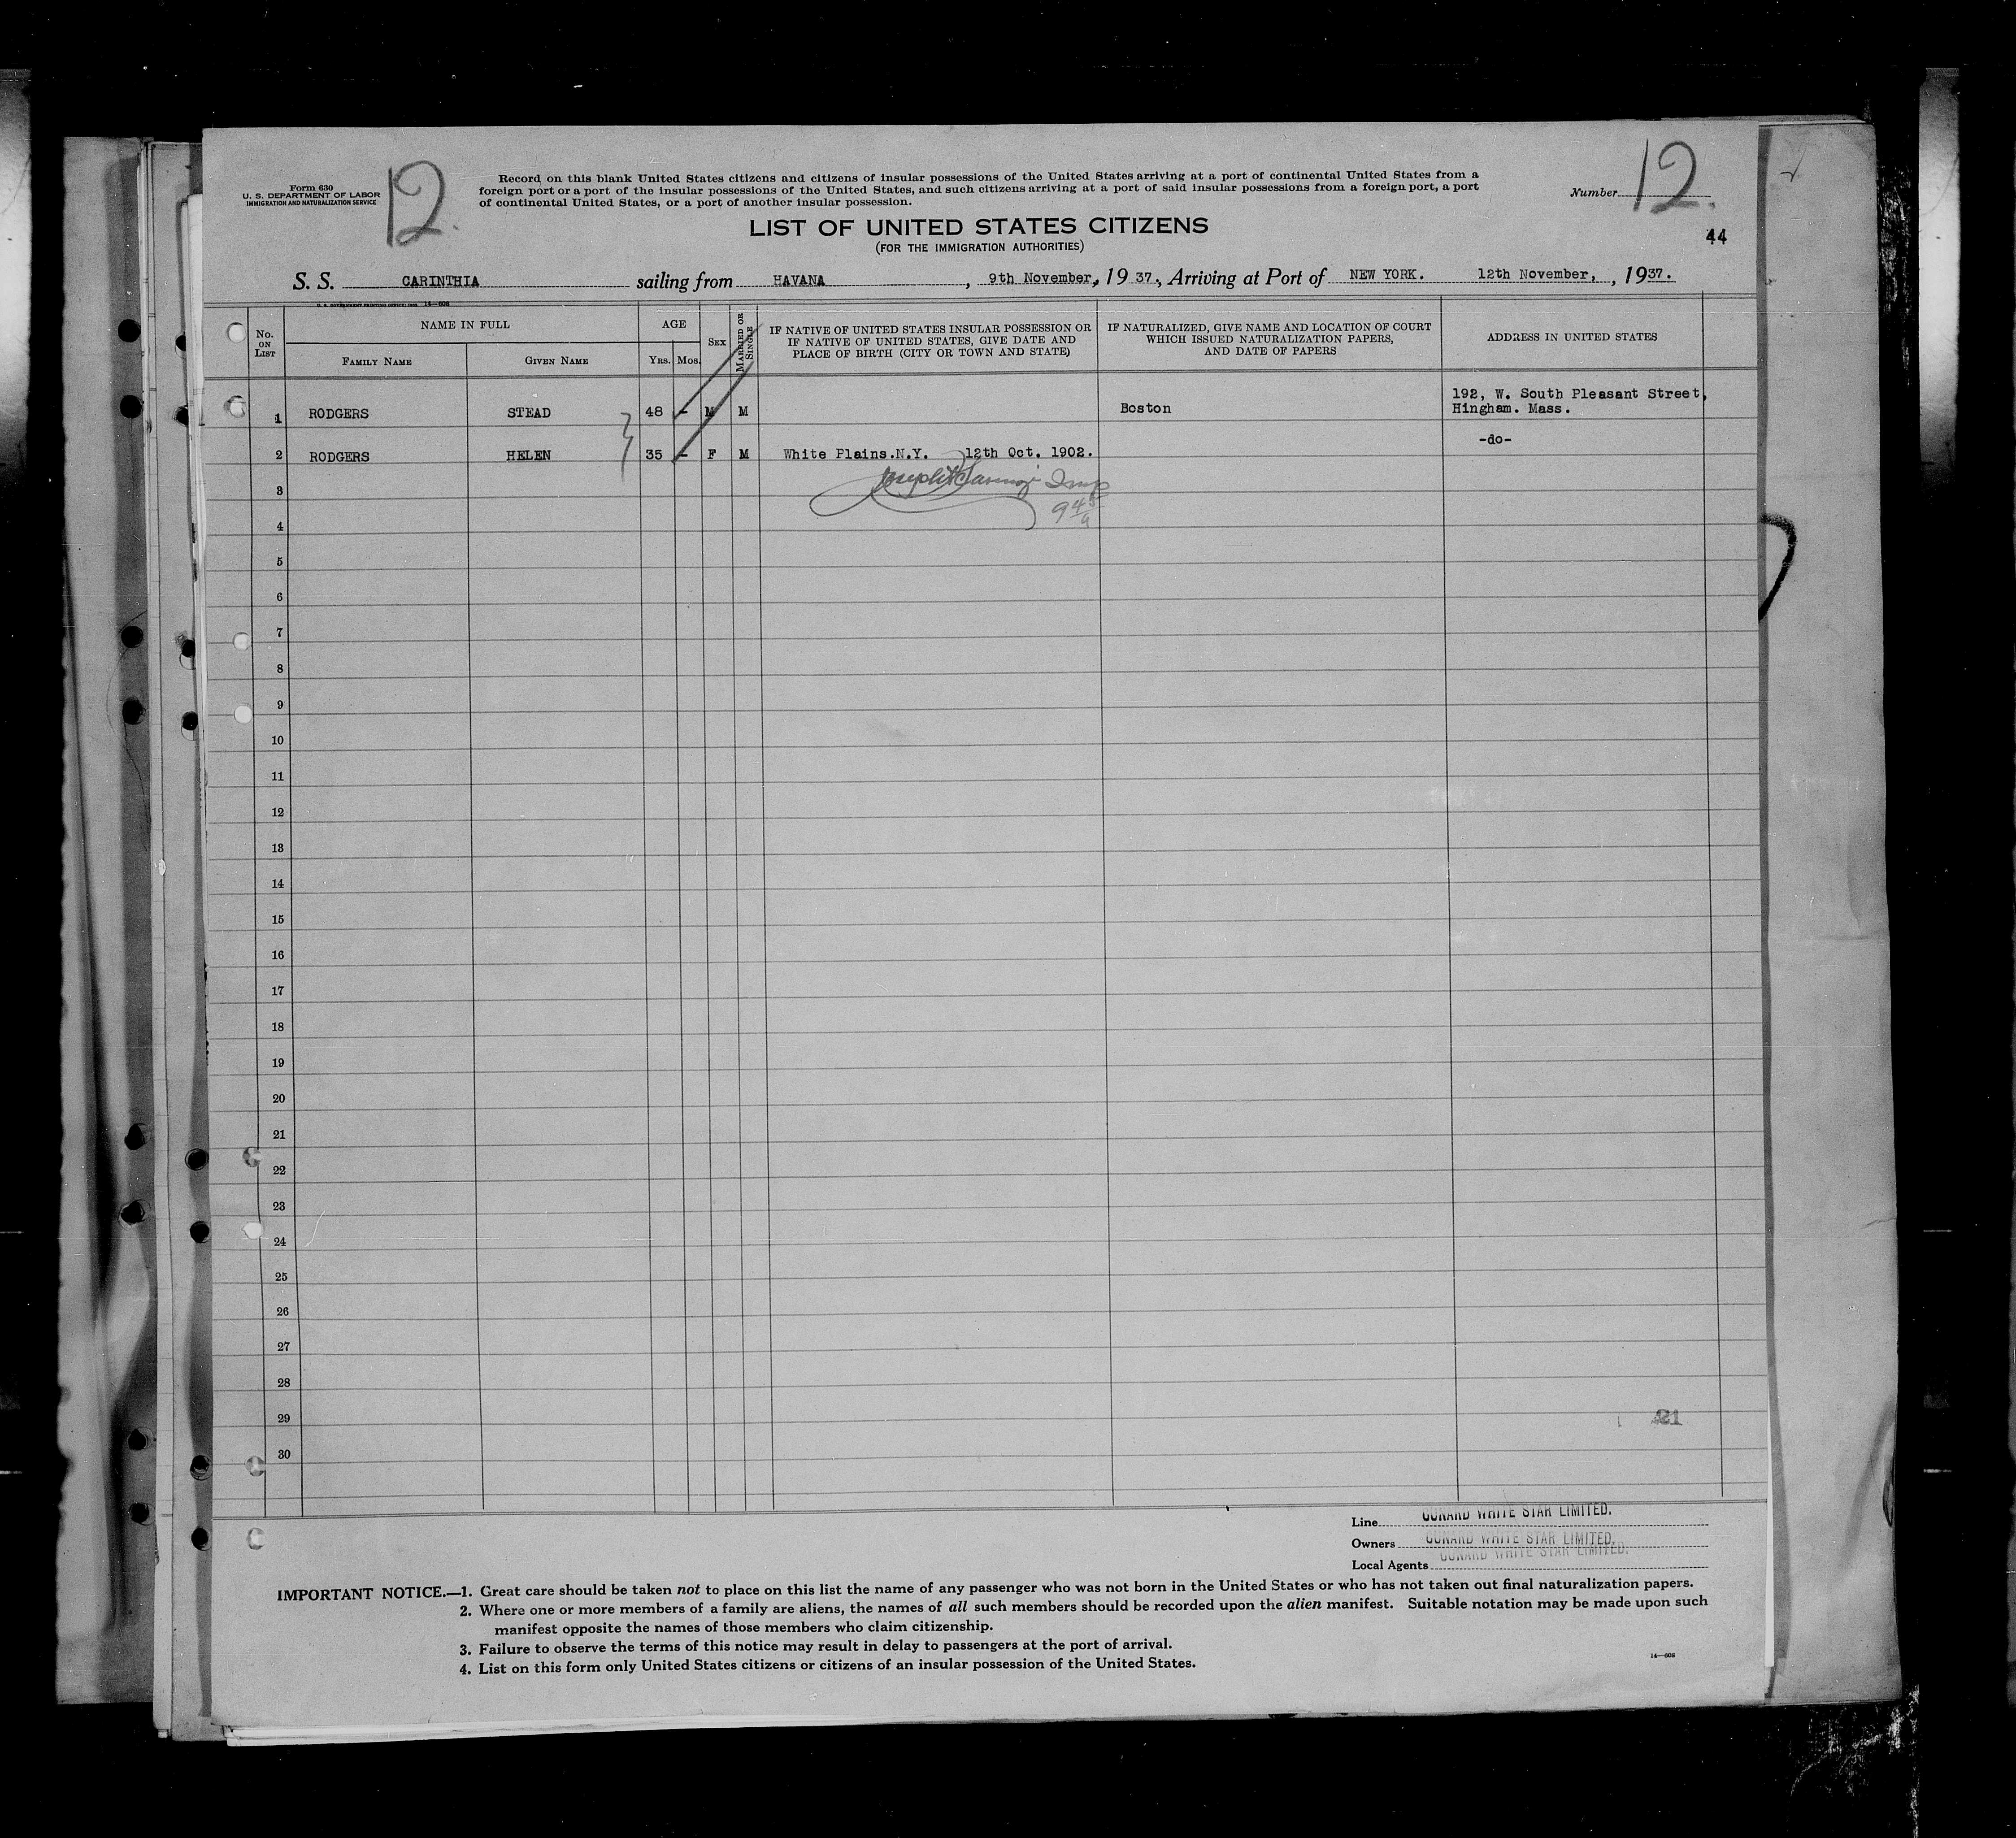 Form 630
U. S. DEPARTMENT OF LABOR
IMMIGRATION AND NATURALIZATION SERVICE
12.
Record on this blank United States citizens and citizens of insular possessions of the United States arriving at a port of continental United States from a
foreign port or a port of the insular possessions of the United States, and such citizens arriving at a port of said insular possessions from a foreign port, a port
of continental United States, or a port of another insular possession.
Number 12.
LIST OF UNITED STATES CITIZENS
(FOR THE IMMIGRATION AUTHORITIES)
44
S. S. CARINTHIA sailing from HAVANA, 9th November, 1937., Arriving at Port of NEW YORK. 12th November, , 1937.
U. S. GOVERNMENT PRINTING OFFICE: 14—608
No. ON LIST
NAME IN FULL
FAMILY NAME
GIVEN NAME
AGE
YRS. MOS.
SEX
MARRIED OR SINGLE
IF NATIVE OF UNITED STATES INSULAR POSSESSION OR
IF NATIVE OF UNITED STATES, GIVE DATE AND
PLACE OF BIRTH (CITY OR TOWN AND STATE)
IF NATURALIZED, GIVE NAME AND LOCATION OF COURT
WHICH ISSUED NATURALIZATION PAPERS,
AND DATE OF PAPERS
ADDRESS IN UNITED STATES
1 RODGERS STEAD 48 - M M Boston 192, W. South Pleasant Street,
Hingham. Mass.
2 RODGERS HELEN 35 - F M White Plains.N.Y. 12th Oct. 1902. -do-
3
4
5
6
7
8
9
10
11
12
13
14
15
16
17
18
19
20
21
22
23
24
25
26
27
28
29
21
30
Line CUNARD WHITE STAR LIMITED.
Owners CUNARD WHITE STAR LIMITED.
Local Agents CUNARD WHITE STAR LIMITED.
IMPORTANT NOTICE.—1. Great care should be taken not to place on this list the name of any passenger who was not born in the United States or who has not taken out final naturalization papers.
2. Where one or more members of a family are aliens, the names of all such members should be recorded upon the alien manifest. Suitable notation may be made upon such
manifest opposite the names of those members who claim citizenship.
3. Failure to observe the terms of this notice may result in delay to passengers at the port of arrival.
4. List on this form only United States citizens or citizens of an insular possession of the United States.
14—608